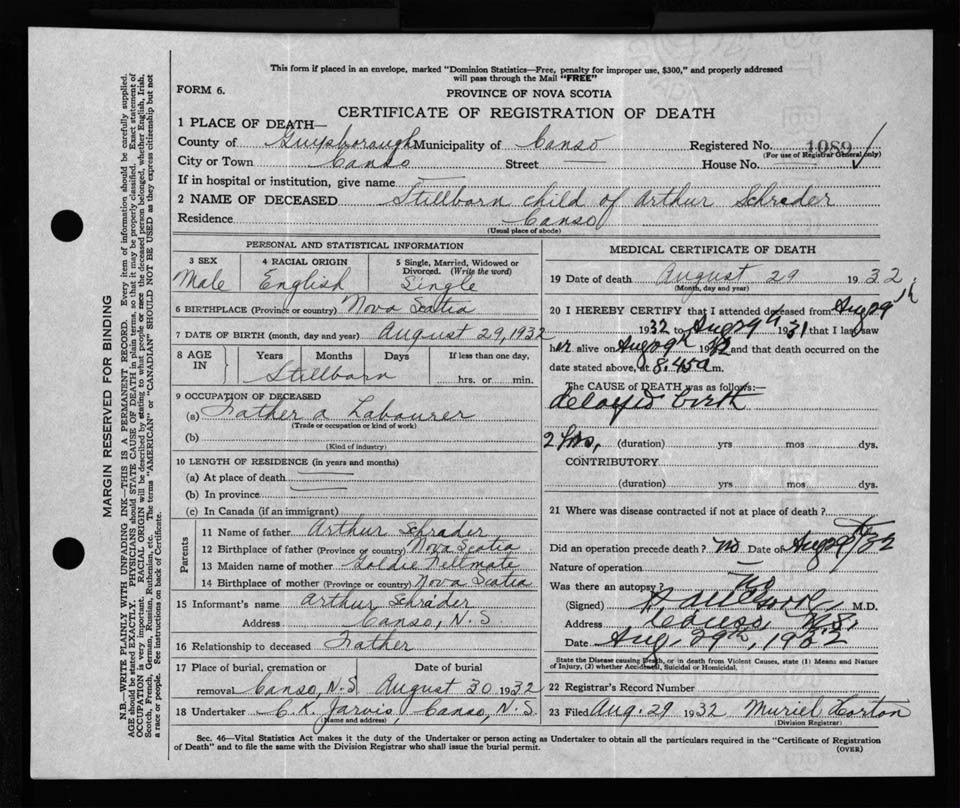 This form if placed in an envelope, marked "Dominion Statistics—Free, penalty for improper use, $300," and properly addressed
will pass through the Mail "FREE"
FORM 6.
PROVINCE OF NOVA SCOTIA
CERTIFICATE OF REGISTRATION OF DEATH
1 PLACE OF DEATH—
County of Guysborough Municipality of Canso Registered No. 1089
(For use of Registrar General only)
City or Town Canso Street — House No.
If in hospital or institution, give name —
2 NAME OF DECEASED Stillborn child of Arthur Schrader
Residence Canso
(Usual place of abode)
PERSONAL AND STATISTICAL INFORMATION
3 SEX 4 RACIAL ORIGIN 5 Single, Married, Widowed or Divorced. (Write the word)
Male English Single
6 BIRTHPLACE (Province or country) Nova Scotia
7 DATE OF BIRTH (month, day and year) August 29, 1932
8 AGE IN Years Months Days If less than one day,
Stillborn hrs. or min.
9 OCCUPATION OF DECEASED
(a) Father a Labourer
(Trade or occupation or kind of work)
(b)
(Kind of industry)
10 LENGTH OF RESIDENCE (in years and months)
(a) At place of death —
(b) In province —
(c) In Canada (if an immigrant)
Parents
11 Name of father Arthur Schrader
12 Birthplace of father (Province or country) Nova Scotia
13 Maiden name of mother Goldie
14 Birthplace of mother (Province or country) Nova Scotia
15 Informant's name Arthur Schrader
Address Canso, N.S.
16 Relationship to deceased Father
17 Place of burial, cremation or Date of burial
removal Canso, N.S. August 30 1932
18 Undertaker C. K. Jarvis, Canso, N.S.
(Name and address)
MEDICAL CERTIFICATE OF DEATH
19 Date of death August 29 1932
(Month, day and year)
20 I HEREBY CERTIFY that I attended deceased from Aug 29th
1932 to Aug 29th 1931 that I last saw
h alive on Aug 29th 1932 and that death occurred on the
date stated above, at 8.45 a m.
The CAUSE of DEATH was as follows:—
delayed birth
2 hrs, (duration) yrs mos dys.
CONTRIBUTORY
(duration) yrs mos dys.
21 Where was disease contracted if not at place of death?
Did an operation precede death? no Date of Aug 29/32
Nature of operation —
Was there an autopsy? no
(Signed) M.D.
Address Canso N.S.
Date Aug 29th, 1932
State the Disease causing Death, or in death from Violent Causes, state (1) Means and Nature
of Injury, (2) whether Accidental, Suicidal or Homicidal.
22 Registrar's Record Number
23 Filed Aug. 29 1932 Muriel Horton
(Division Registrar)
Sec. 46—Vital Statistics Act makes it the duty of the Undertaker or person acting as Undertaker to obtain all the particulars required in the "Certificate of Registration
of Death" and to file the same with the Division Registrar who shall issue the burial permit.
(OVER)
MARGIN RESERVED FOR BINDING
N.B.—WRITE PLAINLY WITH UNFADING INK—THIS IS A PERMANENT RECORD. Every item of information should be carefully supplied.
AGE should be stated EXACTLY. PHYSICIANS should STATE CAUSE OF DEATH in plain terms, so that it may be properly classified. Exact statement of
OCCUPATION is very important. RACIAL ORIGIN will be described by stating to what people or race the deceased person belonged, whether English, Irish,
Scotch, French, German, Russian, Ruthenian, etc. The terms "AMERICAN" or "CANADIAN" SHOULD NOT BE USED as they express citizenship but not
a race or people. See instructions on back of Certificate.